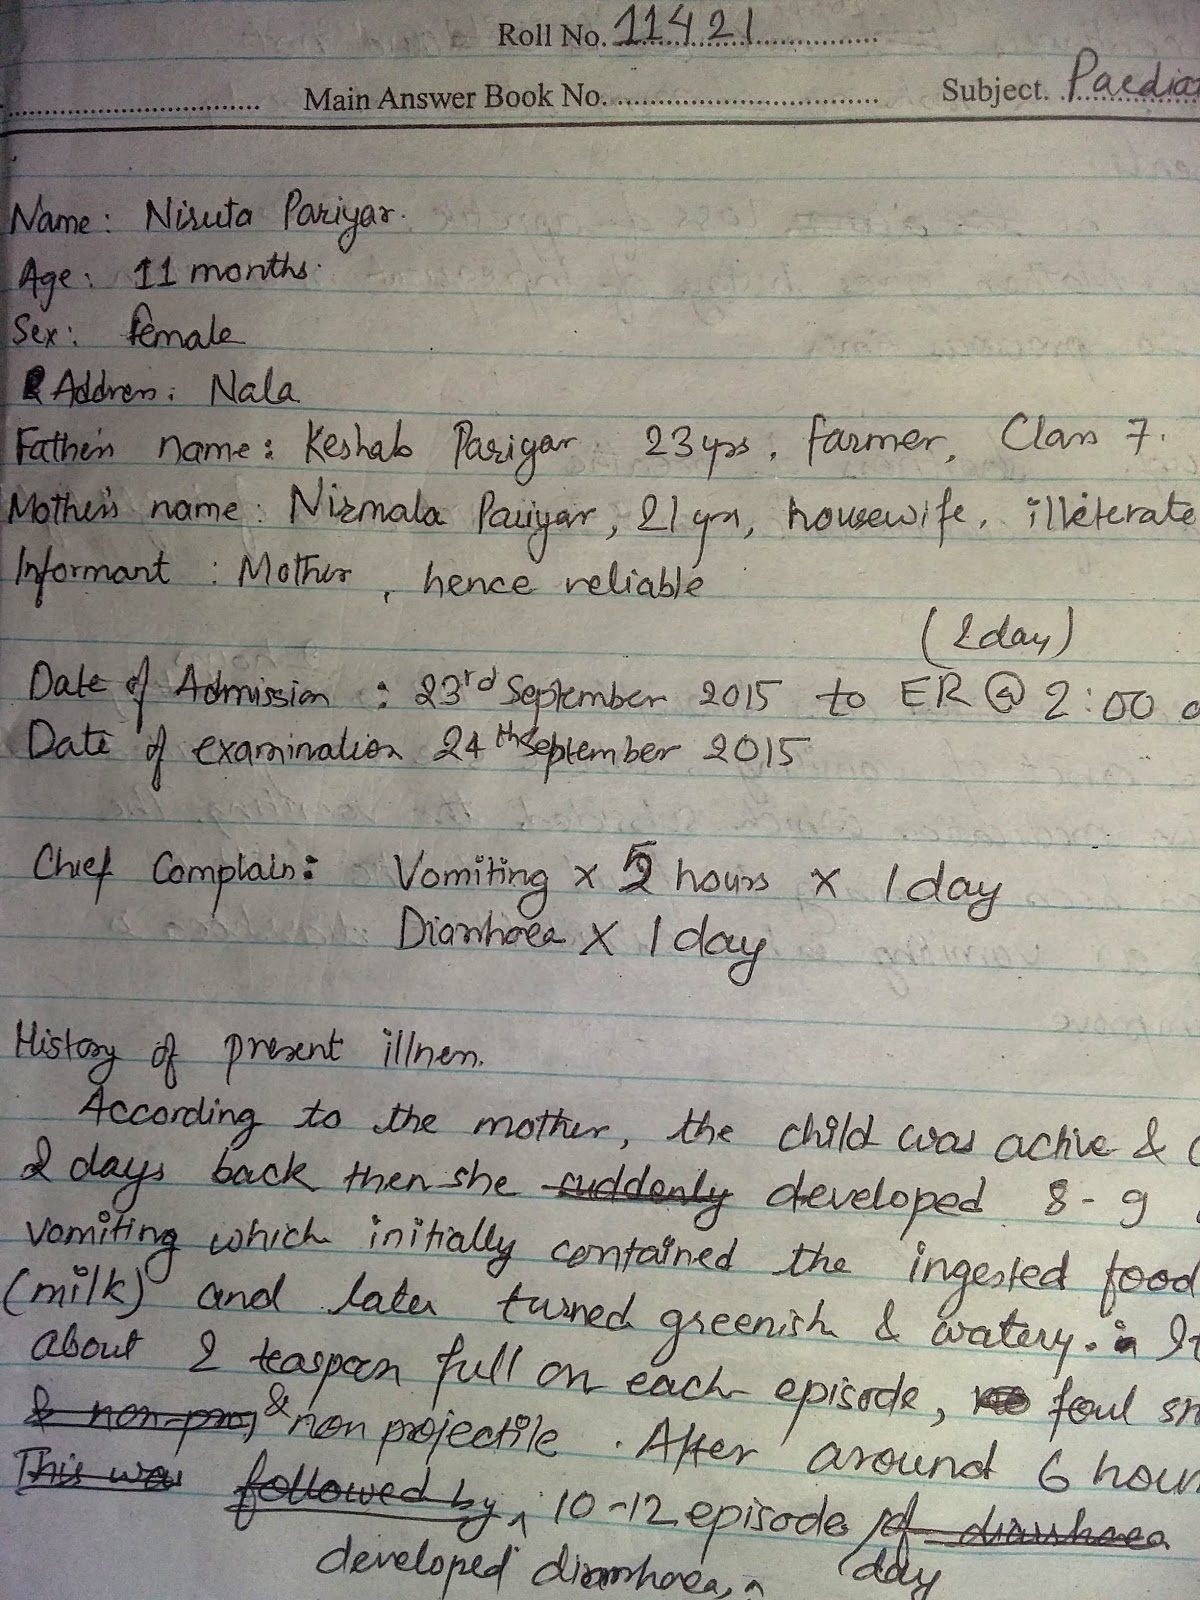 Roll No. 11421
Main Answer Book No. Subject. Paedia
Name: Niruta Pariyar.
Age: 11 months.
Sex: female
Address: Nala
Father's name: Keshab Pariyar 23 yrs, farmer, Class 7.
Mother's name: Nirmala Pariyar, 21 yrs, housewife, illeterate
Informant : Mother, hence reliable
(2 day)
Date of Admission : 23rd September 2015 to ER @ 2:00
Date of examination 24th September 2015
Chief Complain: Vomiting x 5 hours x 1 day
Diarrhoea x 1 day
History of present illness.
According to the mother, the child was active &
2 days back then she suddenly developed 8-9
vomiting which initially contained the ingested food
(milk) and later turned greenish & watery. It
about 2 teaspoon full on each episode, foul sm
& non-proj & non projectile. After around 6 hour
This was followed by 10-12 episode of diarrhoea
developed diarrhoea, / day